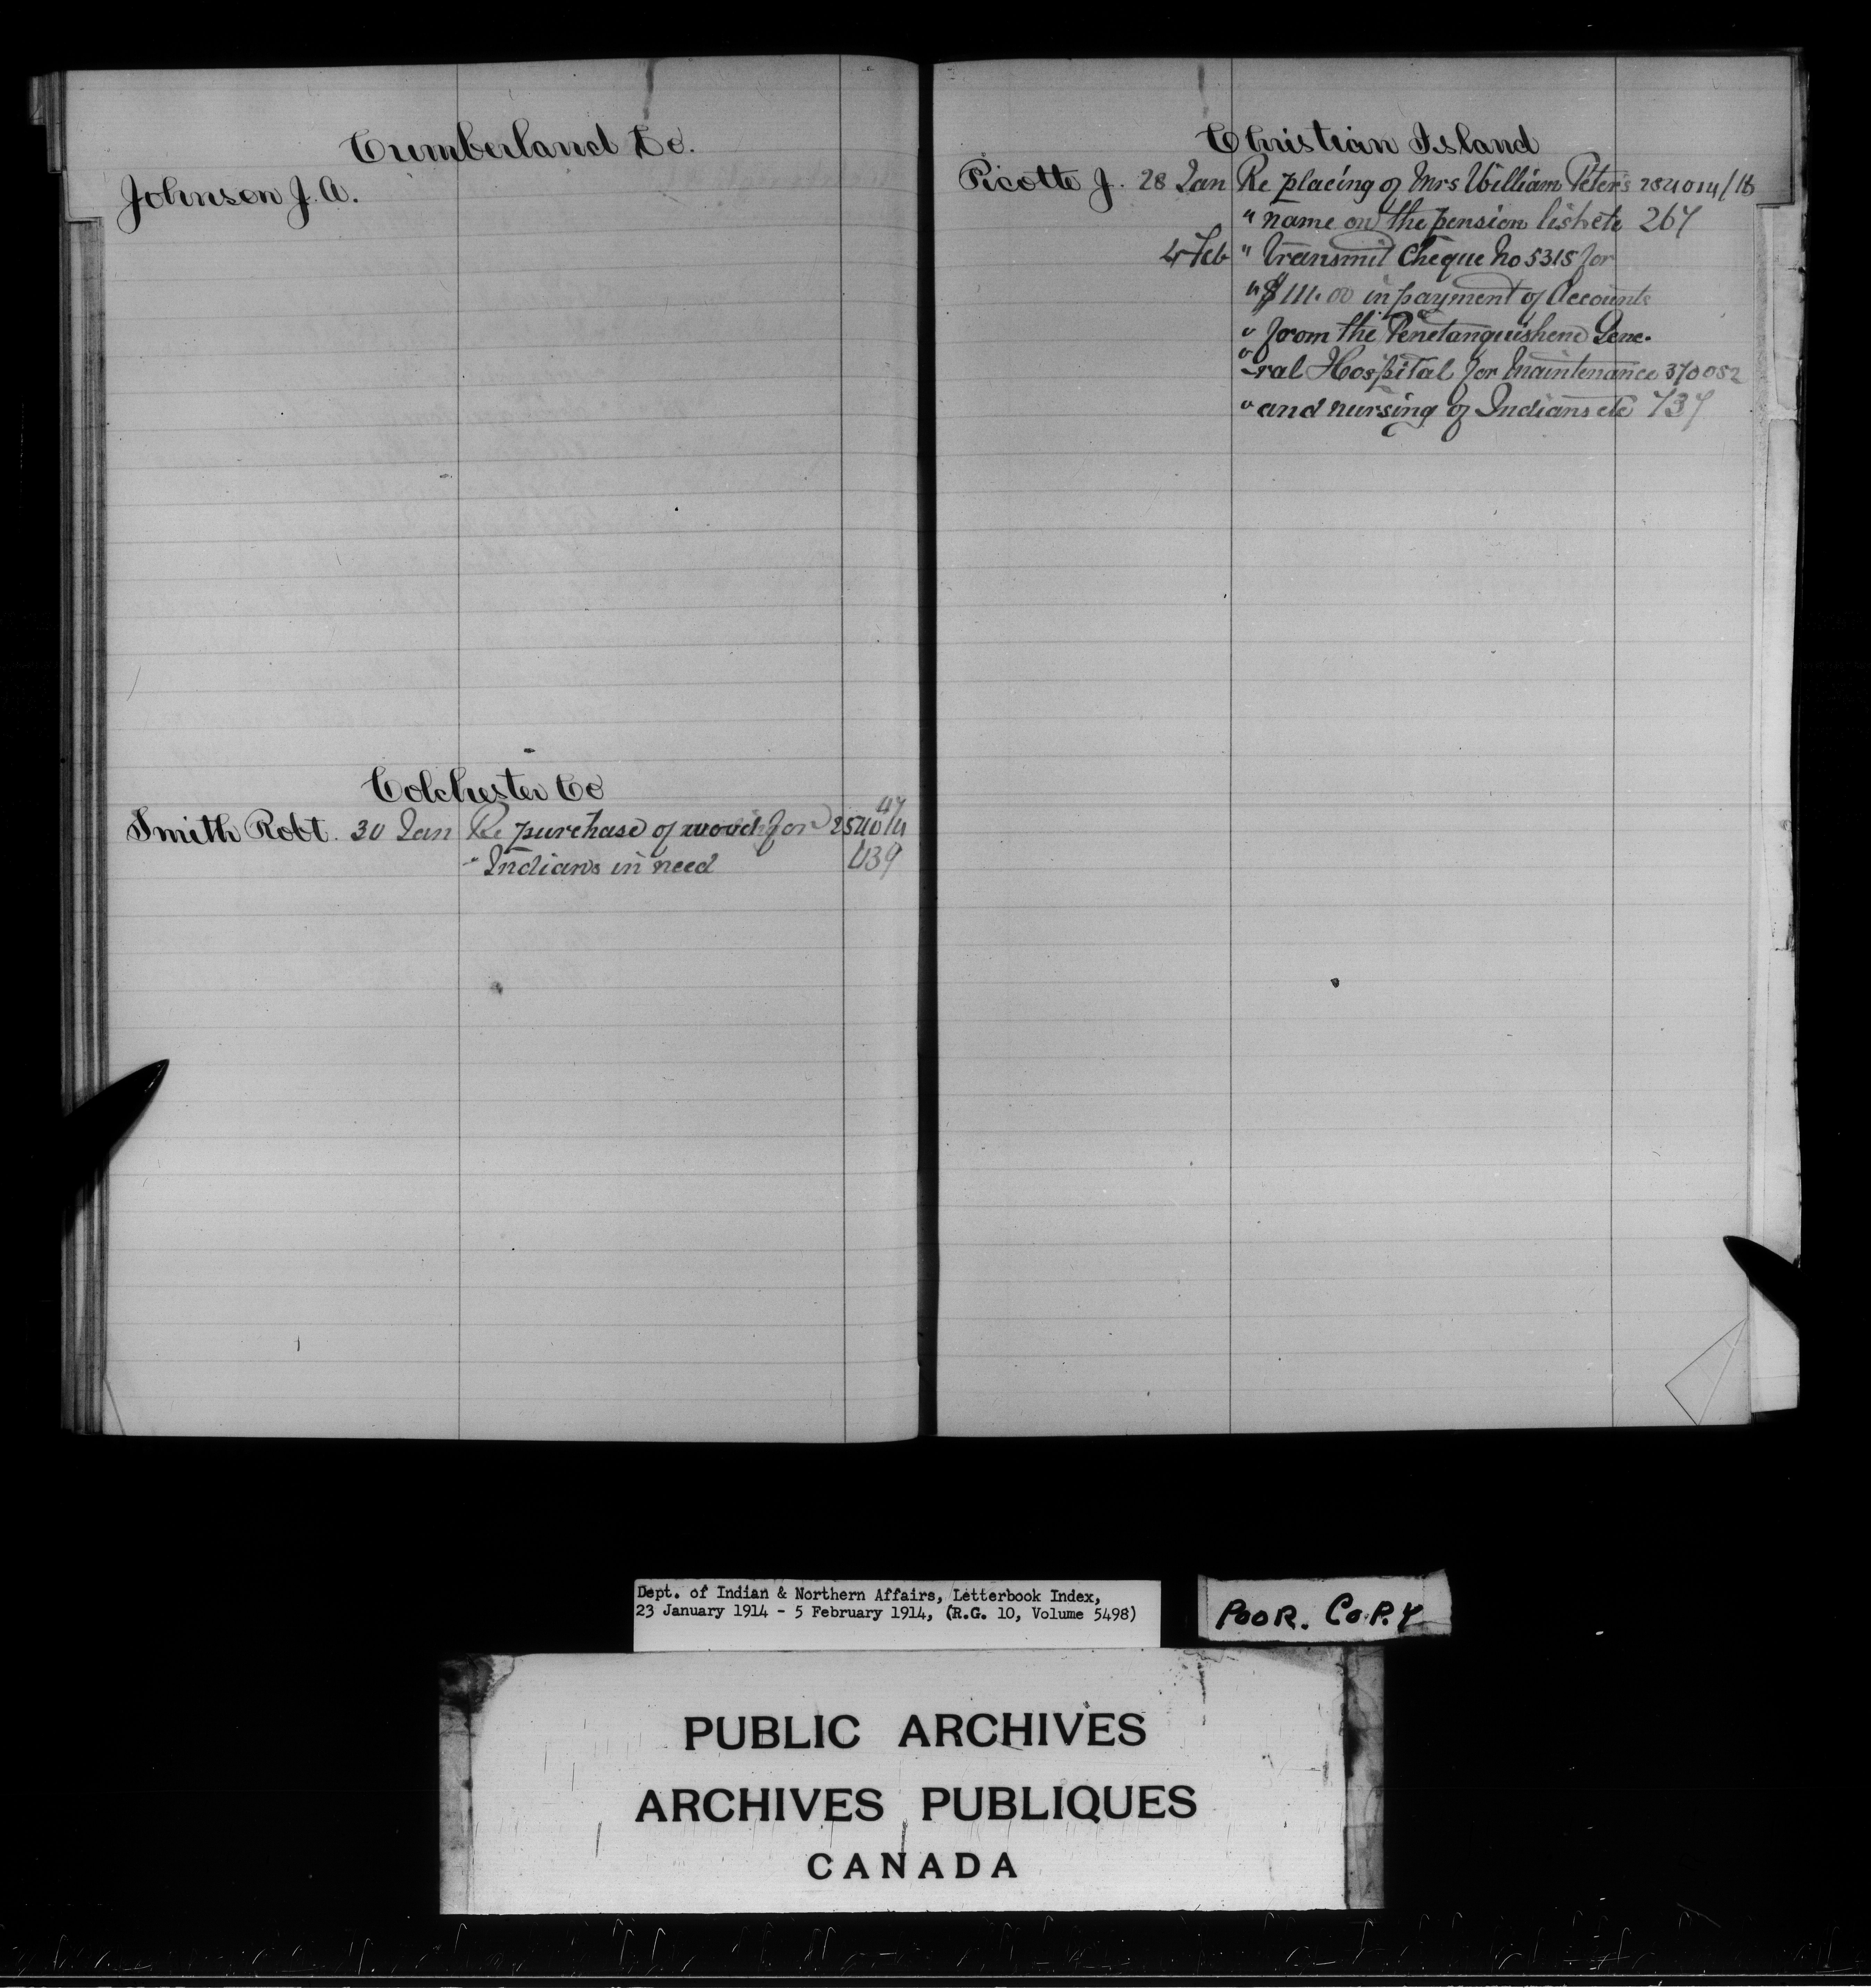 Cumberland Co.
Johnson J. A.
Colchester Co
47
Smith Robt. 30 Jan Re purchase of wood for 254014
" Indians in need 439
Christian Island
Picotte J. 28 Jan Re placing of Mrs William Peter's 284014/18
" name on the pension list etc 267
4 Feb " Transmit Cheque No 5315 for
" $111.00 in payment of Accounts
" from the Penetanguishene Gene-
" -ral Hospital for Maintenance 370052
" and nursing of Indians etc 737
Dept. of Indian & Northern Affairs, Letterbook Index,
23 January 1914 - 5 February 1914, (R.G. 10, Volume 5498)
POOR. COPY
PUBLIC ARCHIVES
ARCHIVES PUBLIQUES
CANADA